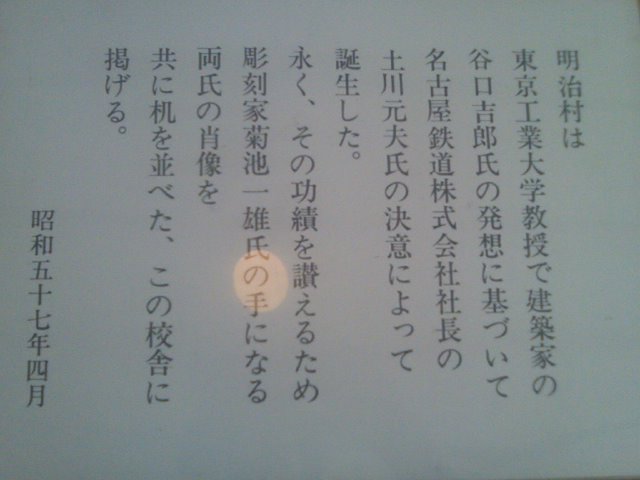 明治村は
東京工業大学教授で建築家の
谷口吉郎氏の発想に基づいて
名古屋鉄道株式会社社長の
土川元夫氏の決意によって
誕生した。
永く、その功績を讃えるため
彫刻家菊池一雄氏の手になる
両氏の肖像を
共に机を並べた、この校舎に
掲げる。
昭和五十七年四月